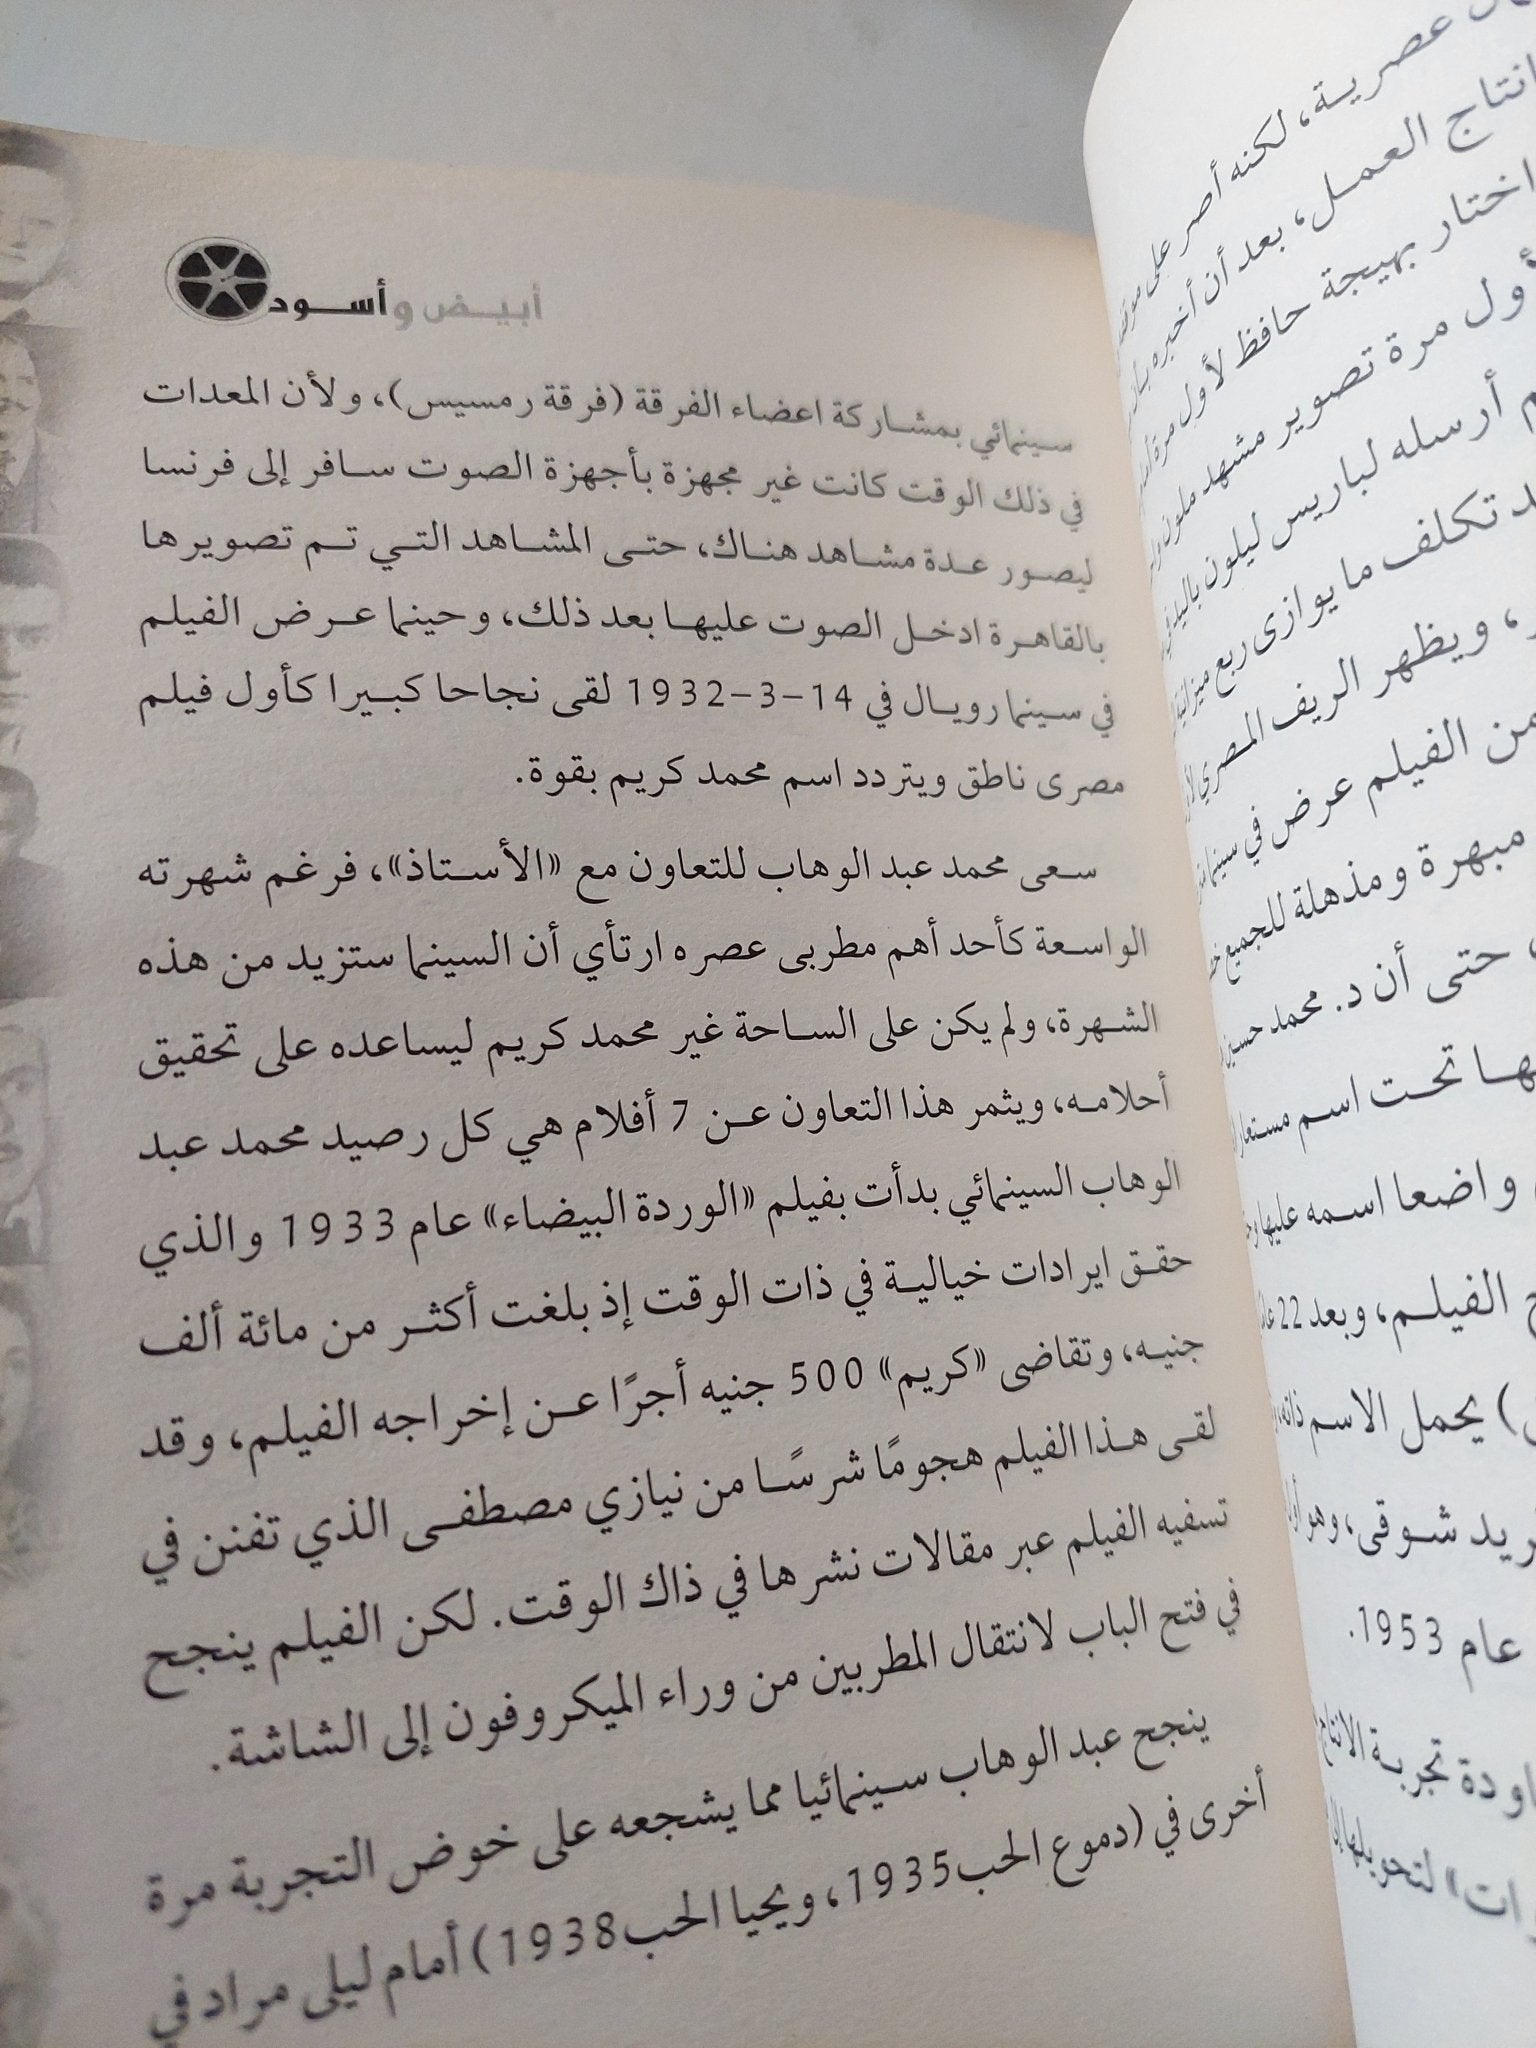 عصرية، لكنه أصر على
انتاج العمل، بعد أن أخبره
اختار بهيجة حافظ لأول مرة
أول مرة تصوير مشهد ملون
أرسله لباريس ليلون باليد في
تكلف ما يوازى ربع ميزانية
، ويظهر الريف المصري
من الفيلم عرض في سينما
مبهرة ومذهلة للجميع
حتى أن د. محمد حسين
تحت اسم مستعار
واضعا اسمه عليها
الفيلم، وبعد 22
) يحمل الاسم ذاته،
شوقى، وهو
عام 1953.
تجربة الانتاج
لتحويلها
أبيض وأسود
سينمائي بمشاركة اعضاء الفرقة (فرقة رمسيس)، ولأن المعدات
في ذلك الوقت كانت غير مجهزة بأجهزة الصوت سافر إلى فرنسا
ليصور عدة مشاهد هناك، حتى المشاهد التي تم تصويرها
بالقاهرة ادخل الصوت عليها بعد ذلك، وحينما عرض الفيلم
في سينما رويال في 14-3-1932 لقى نجاحا كبيرا كأول فيلم
مصرى ناطق ويتردد اسم محمد كريم بقوة.
سعى محمد عبد الوهاب للتعاون مع «الأستاذ»، فرغم شهرته
الواسعة كأحد أهم مطربى عصره ارتأي أن السينما ستزيد من هذه
الشهرة، ولم يكن على الساحة غير محمد كريم ليساعده على تحقيق
أحلامه، ويثمر هذا التعاون عن 7 أفلام هي كل رصيد محمد عبد
الوهاب السينمائي بدأت بفيلم «الوردة البيضاء» عام 1933 والذي
حقق ايرادات خيالية في ذات الوقت إذ بلغت أكثر من مائة ألف
جنيه، وتقاضى «كريم» 500 جنيه أجرًا عن إخراجه الفيلم، وقد
لقى هذا الفيلم هجومًا شرسًا من نيازي مصطفى الذي تفنن في
تسفيه الفيلم عبر مقالات نشرها في ذاك الوقت. لكن الفيلم ينجح
في فتح الباب لانتقال المطربين من وراء الميكروفون إلى الشاشة.
ينجح عبد الوهاب سينمائيا مما يشجعه على خوض التجربة مرة
أخرى في (دموع الحب1935، ويحيا الحب1938) أمام ليلى مراد في